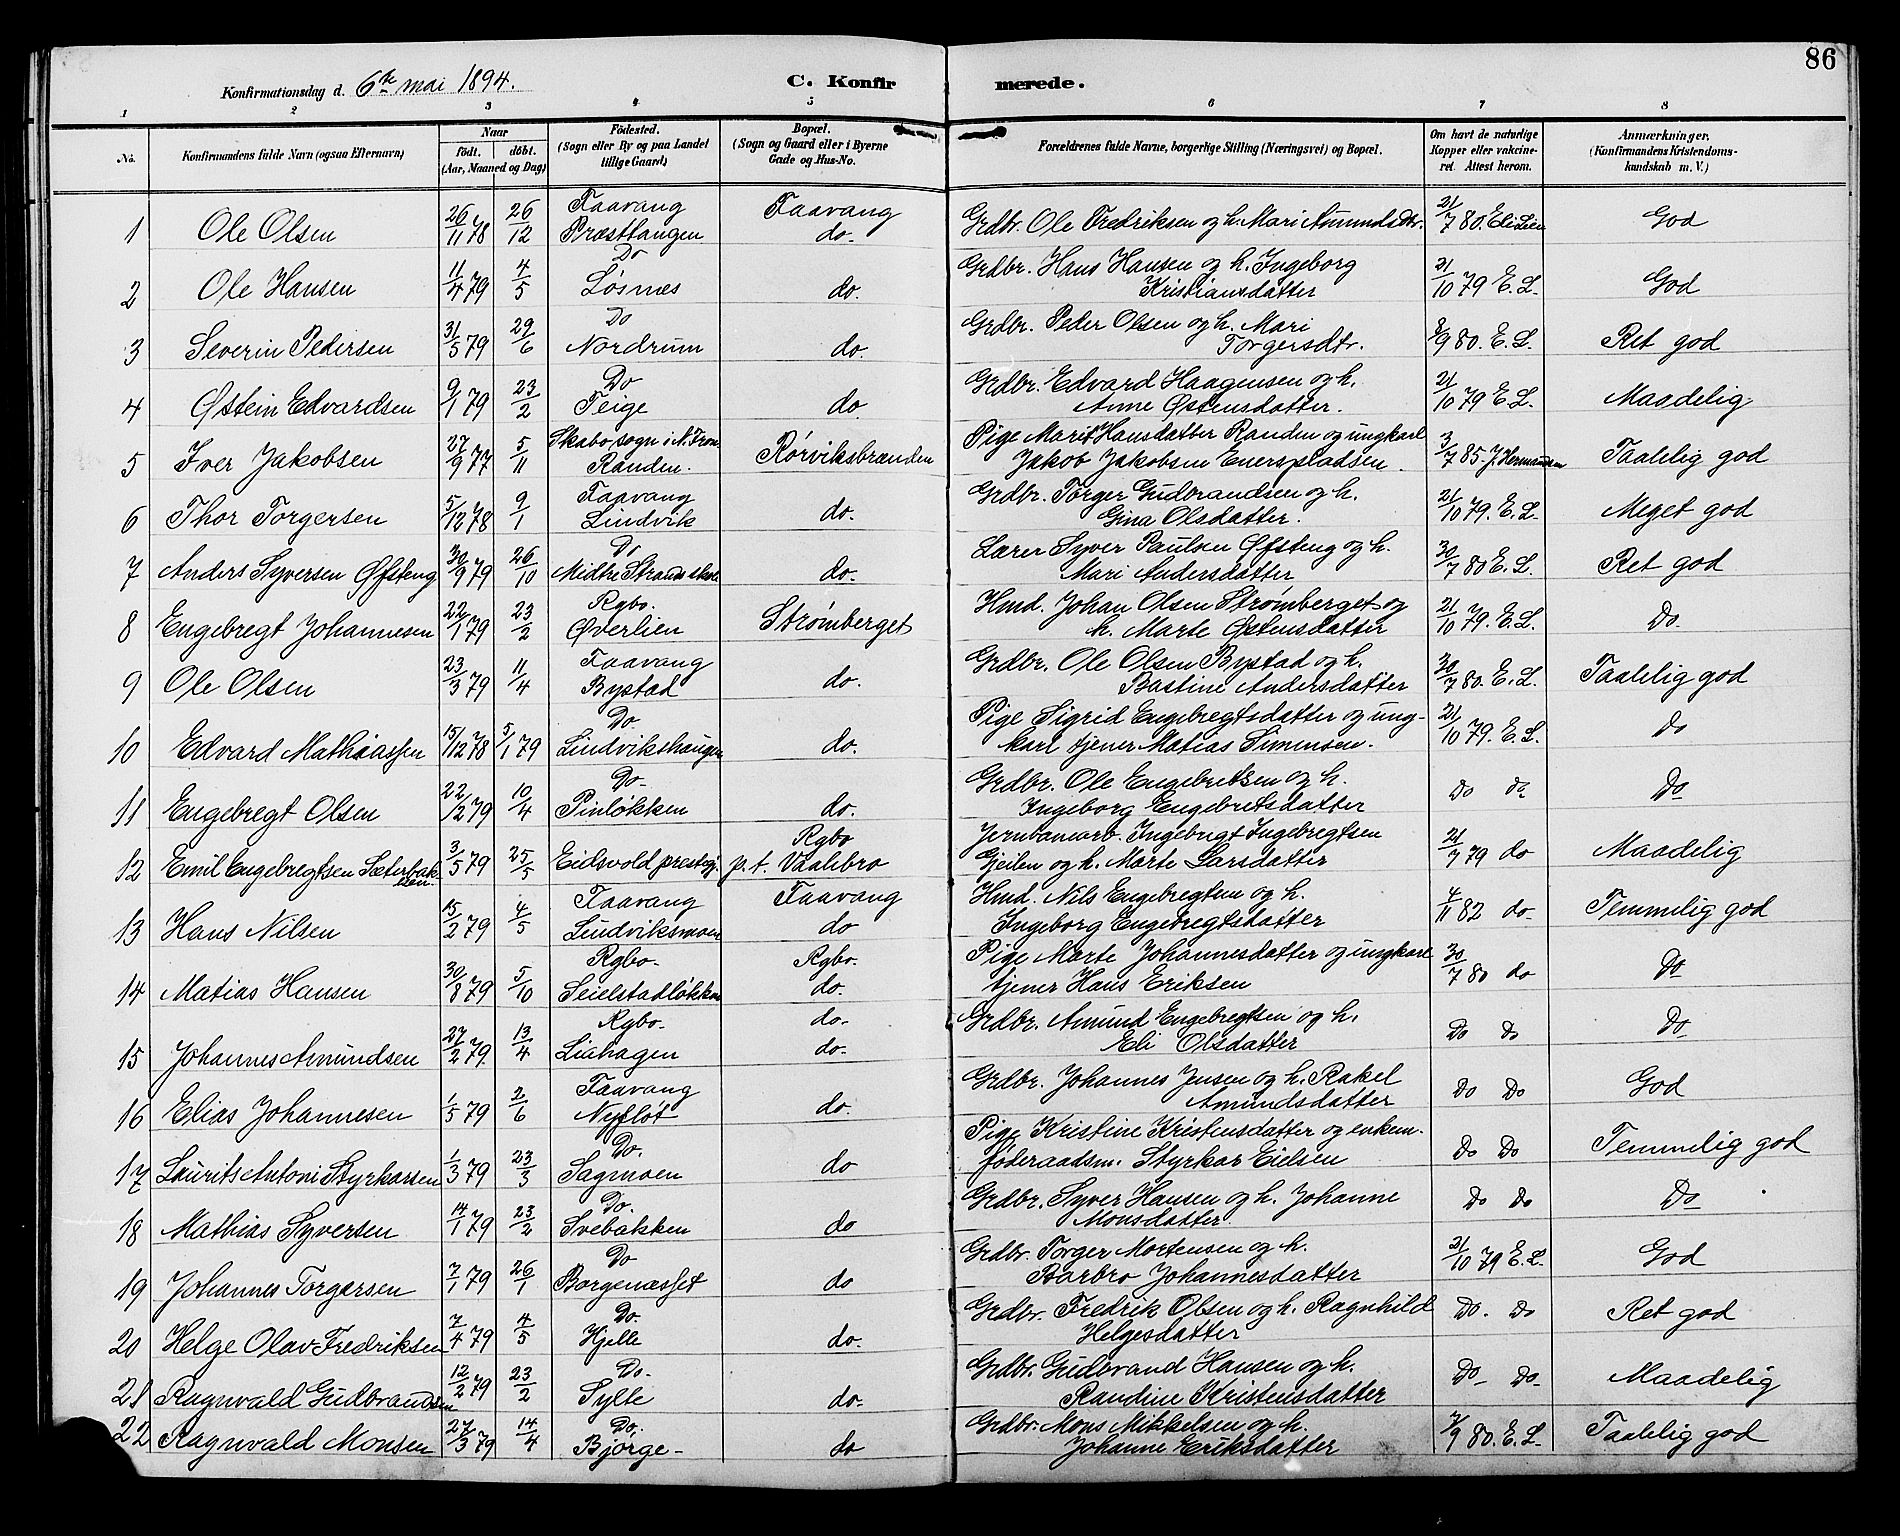 86
Konfirmationsdag d. 6te mai 1894.
C. Konfirmerede.
1 2 3 4 5 6 7 8
No. Konfirmandens fulde Navn (ogsaa Efternavn) Naar født. døbt. (Aar, Maaned og Dag) Fødested. (Sogn eller By og paa Landet tillige Gaard) Bopæl. (Sogn og Gaard eller i Byerne Gade og Hus-No. Forældrenes fulde Navne, borgerlige Stilling (Næringsvei) og Bopæl. Om havt de naturlige Kopper eller vakcineret. Attest herom. Anmærkninger. (Konfirmandens Kristendomskundskab m. V.)
1 Ole Olsen 26/11 78 26/12 Faavang Præsttangen Faavang do. Grdbr. Ole Fredriksen og h. Mari Amundsdtr. 21/7 80. Eli Lien God
2 Ole Hansen 11/4 79 4/5 Do Løsnes do. Grdbr. Hans Hansen og h. Ingeborg Kristiansdatter 21/10 79 E. L. God
3 Severin Pedersen 31/5 79 29/6 Do Nordrum do. Grdbr. Peder Olsen og h. Mari Torgersdtr. 8/9 80. E. L. Ret god
4 Østein Edvardsen 9/1 79 23/2 Do Teige do Grdbr. Edvard Haagensen og h. Anne Østensdatter. 21/10 79 E. L. Maadelig
5 Iver Jakobsen 27/9 77 5/11 Skabo sogn i N. Fron Randen. Rørviksbrænden Pige Marit Hansdatter Randen og ungkarl Jakob Jakobsen Enerspladsen. 3/7 85. J. Hermansen Taalelig god
6 Thor Torgersen 5/12 78 9/1 Faavang Lindvik do. Grdbr. Torger Gudbrandsen og h. Gina Olsdatter. 21/10 79. E. L. Meget god
7 Anders Syversen Øfsteng 30/9 79 26/10 Do Midtre Strands skole do. Lærer Syver Paulsen Øfsteng og h. Mari Andersdatter 30/7 80 E. L. Ret god
8 Engebregt Johannesen 22/1 79 23/2 Rgbo. Øverlien Strømberget Hmd. Johan Olsen Strømberget og h. Marte Østensdatter 21/10 79. E. L. Do.
9 Ole Olsen 23/3 79 11/4 Faavang Bystad do. Grdbr. Ole Olsen Bystad og h. Bastine Andersdatter 30/7 80. E. L. Taalelig god
10 Edvard Mathiassen 15/12 78 5/1 79 Do. Lindvikshaugen do. Pige Sigrid Engebregtsdatter og ungkarl tjener Matias Simensen. 21/10 79. E. L. Do
11 Engebregt Olsen 22/12 79 10/4 Do. Pinløkken do. Grdbr. Ole Engebretsen og h. Ingeborg Engebretsdatter Do do Do
12 Emil Engebregtsen Sæterbakken 3/5 79 25/5 Eidsvold prestegj. Rgbo p. t. Vaalebro Jernbanearb. Ingebrigt Ingebregtsen Gjeilen og h. Marte Larsdatter 21/7 79 do Maadelig
13 Hans Nilsen 15/2 79 4/5 Faavang Lindviksmoen Faavang do Hmd. Nils Engebregtsen og h. Ingeborg Engebregtsdatter 4/11 82 do. Temmelig god
14 Matias Hansen 30/8 79 5/10 Rgbo. Seielstadløkken Rgbo. do. Pige Marte Johannesdatter og ungkarl tjener Hans Eriksen 30/7 80 do Do
15 Johannes Amundsen 27/2 79. 13/4 Rgbo. Liahagen do. do. Grdbr. Amund Engebregtsen og h. Eli Olsdatter Do Do Do
16 Elias Johannesen 1/5 79 2/6 Faavang Nyfløt do. Grdbr. Johannes Jensen og h. Rakel Amundsdatter Do Do God
17 Laurits Antoni Styrkarsen 1/3 79 23/3 Do. Sagmoen do Pige Kristine Kristensdatter og enkem. føderaadsm. Styrkar Eielsen Do Do Temmelig god
18 Mathias Syversen 14/1 79 23/2 Do. Svebakken do Grdbr. Syver Hansen og h. Johanne Monsdatter Do Do Do
19 Johannes Torgersen 7/1 79 26/1 Do Borgenæsset do Grdbr. Torger Mortensen og h. Barbro Johannesdatter 21/10 79 E. L. God
20 Helge Olav Fredriksen 7/4 79 4/5 Do. Hjelle do. Grdbr. Fredrik Olsen og h. Ragnhild Helgesdatter Do. Do Ret god
21 Ragnvald Gudbrandsen 12/2 79 23/2 Do. Sylte do. Grdbr. Gudbrand Hansen og h. Randine Kristensdatter Do Do Maadelig
22 Ragnvald Monsen 27/3 79 14/4 Do. Bjørge do Grdbr. Mons Mikkelsen og h. Johanne Eriksdatter 7/9 80. E. L. Taalelig god